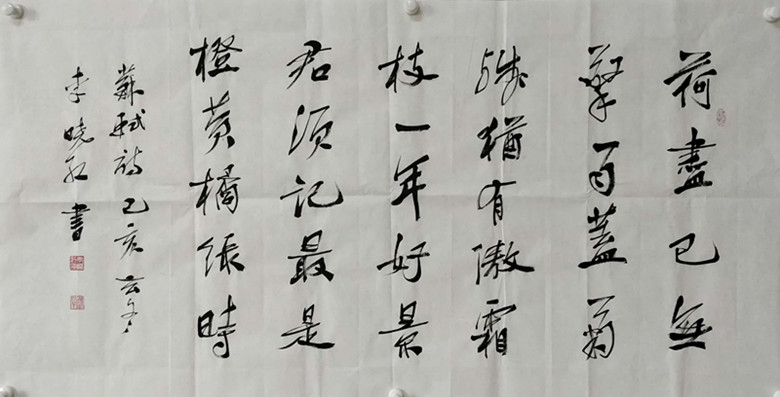 荷盡已無
擎雨蓋菊
殘猶有傲霜
枝一年好景
君須記最是
橙黃橘綠時
蘇軾詩己亥玄冬
李曉紅書